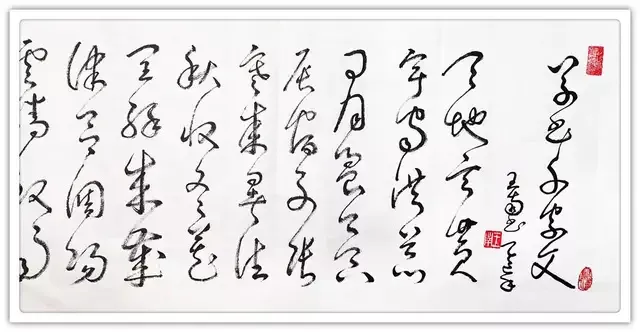 草书千字文
天地玄黄
宇宙洪荒
日月盈昃
辰宿列张
寒来暑往
秋收冬藏
闰余成岁
律吕调阳
云腾致雨